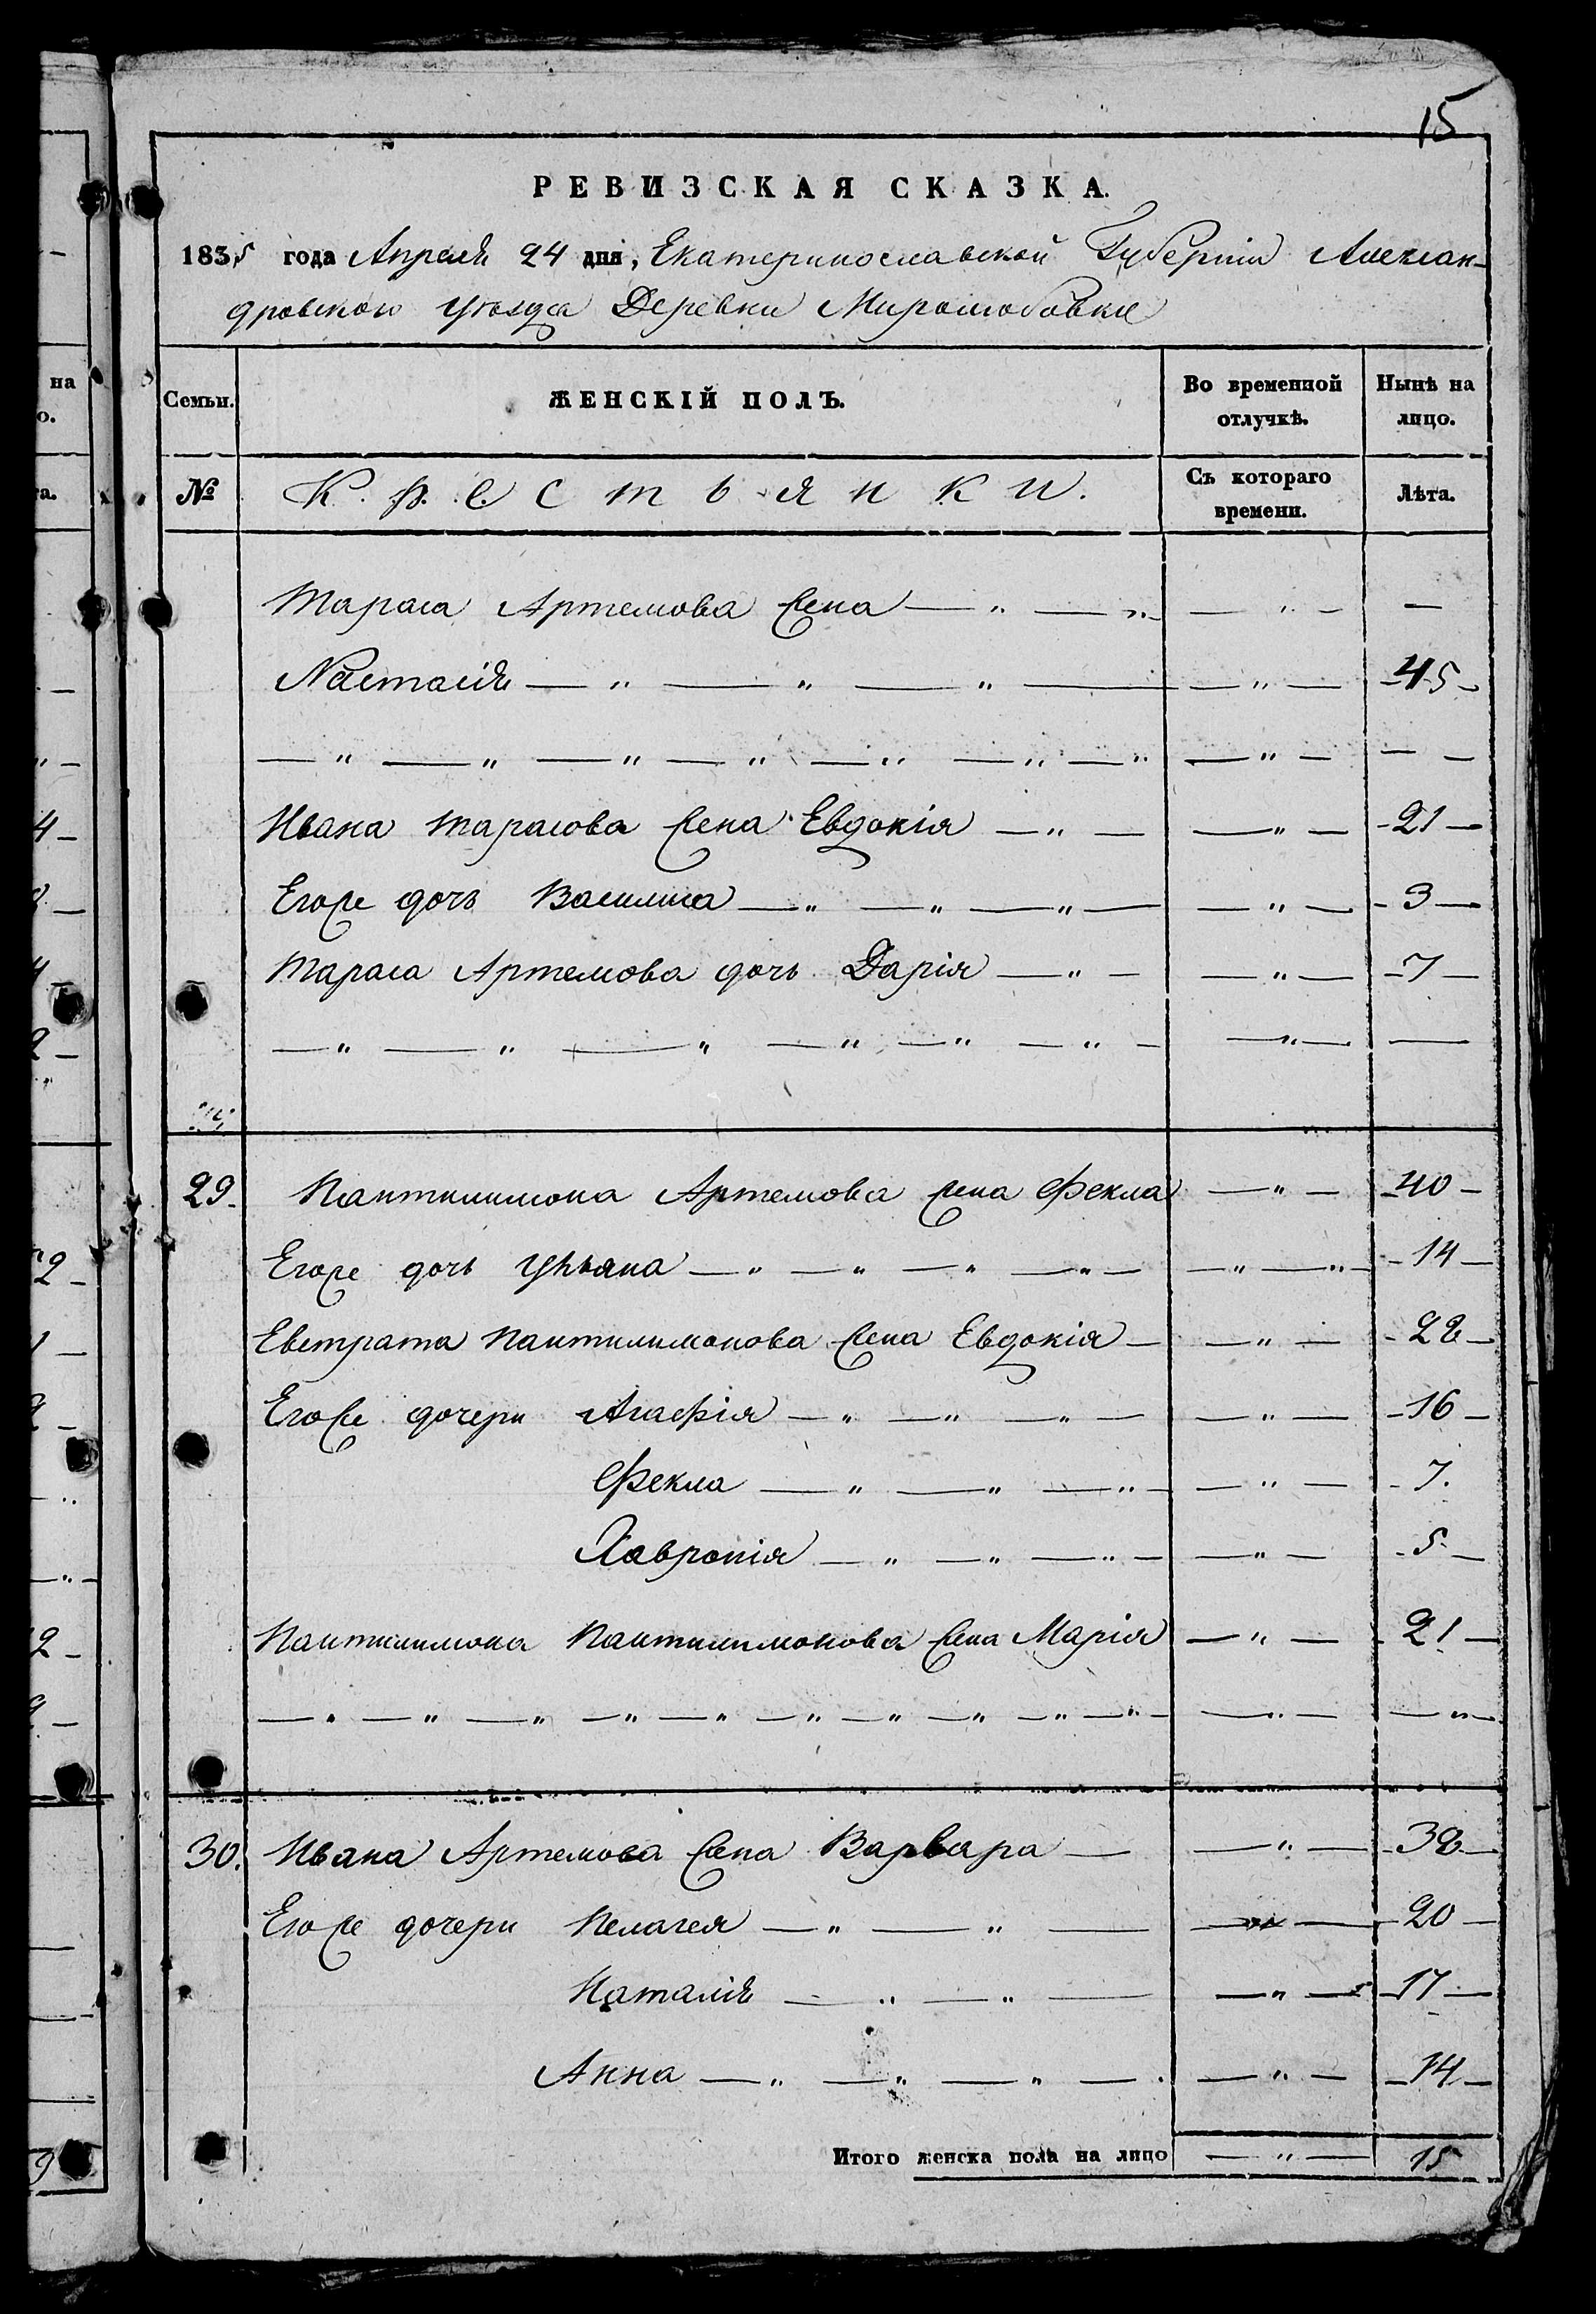 15
РЕВИЗСКАЯ СКАЗКА.
1835 года Апреля 24 дня, Екатеринославской Губерніи Алексан-
дровского уѣзда Деревни Миролюбовки
Семьи. ЖЕНСКІЙ ПОЛЪ. Во временной отлучкѣ. Нынѣ на лицо.
№ Крестьянки. Съ котораго времени. Лѣта.
Тараса Артемова жена — " — " — " — —
Настасія — " — " — " — — " — 45
— " — " — " — " — " — " — " — " — — —
Ивана Тарасова жена Евдокія — " — — " — 21
Егоже дочь Василиса — " — " — " — — " — 3
Тараса Артемова дочь Дарія — " — — " — 7
— " — " — " — " — " — " — — " — —
29. Пантилимона Артемова жена Фекла — " — 40
Егоже дочь Ульяна — " — " — " — " — — " — " — 14
Евстрата Пантилимонова жена Евдокія — — " — 22
Егоже дочери Агафія — " — " — " — — " — 16
Фекла — " — " — " — — " — 7.
Хавронія — " — " — " — — " — 5
Пантилимона Пантилимонова жена Марія — " — 21
— " — " — " — " — " — " — " — " — " — " — — " — — "
30. Ивана Артемова жена Варвара — — " — 38
Егоже дочери Пелагея — " — " — — " — 20
Наталія — " — " — — " — 17
Анна — " — " — " — — " — 14
Итого женска пола на лицо — " — 15